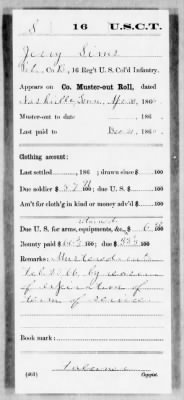 S 16 U.S.C.T.
Jerry Sims
Co. K, 16 Reg't U. S. Col'd Infantry.
Appears on Co. Muster-out Roll, dated
Nashville Tenn, Apr. 30, 1866
Muster-out to date , 186
Last paid to 186
Clothing account:
Last settled , 186 ; drawn since $ 100
Due soldier $ 100; due U. S. $ 100
Am't for cloth'g in kind or money adv'd $ 100
Due U. S. for arms, equipments, &c., $ 6 100
Bounty paid $ 100; due $ 100
Remarks: Mustered out
Feb. 66 by reason
of expiration of
term of service
Book mark:
(861) Copyist.